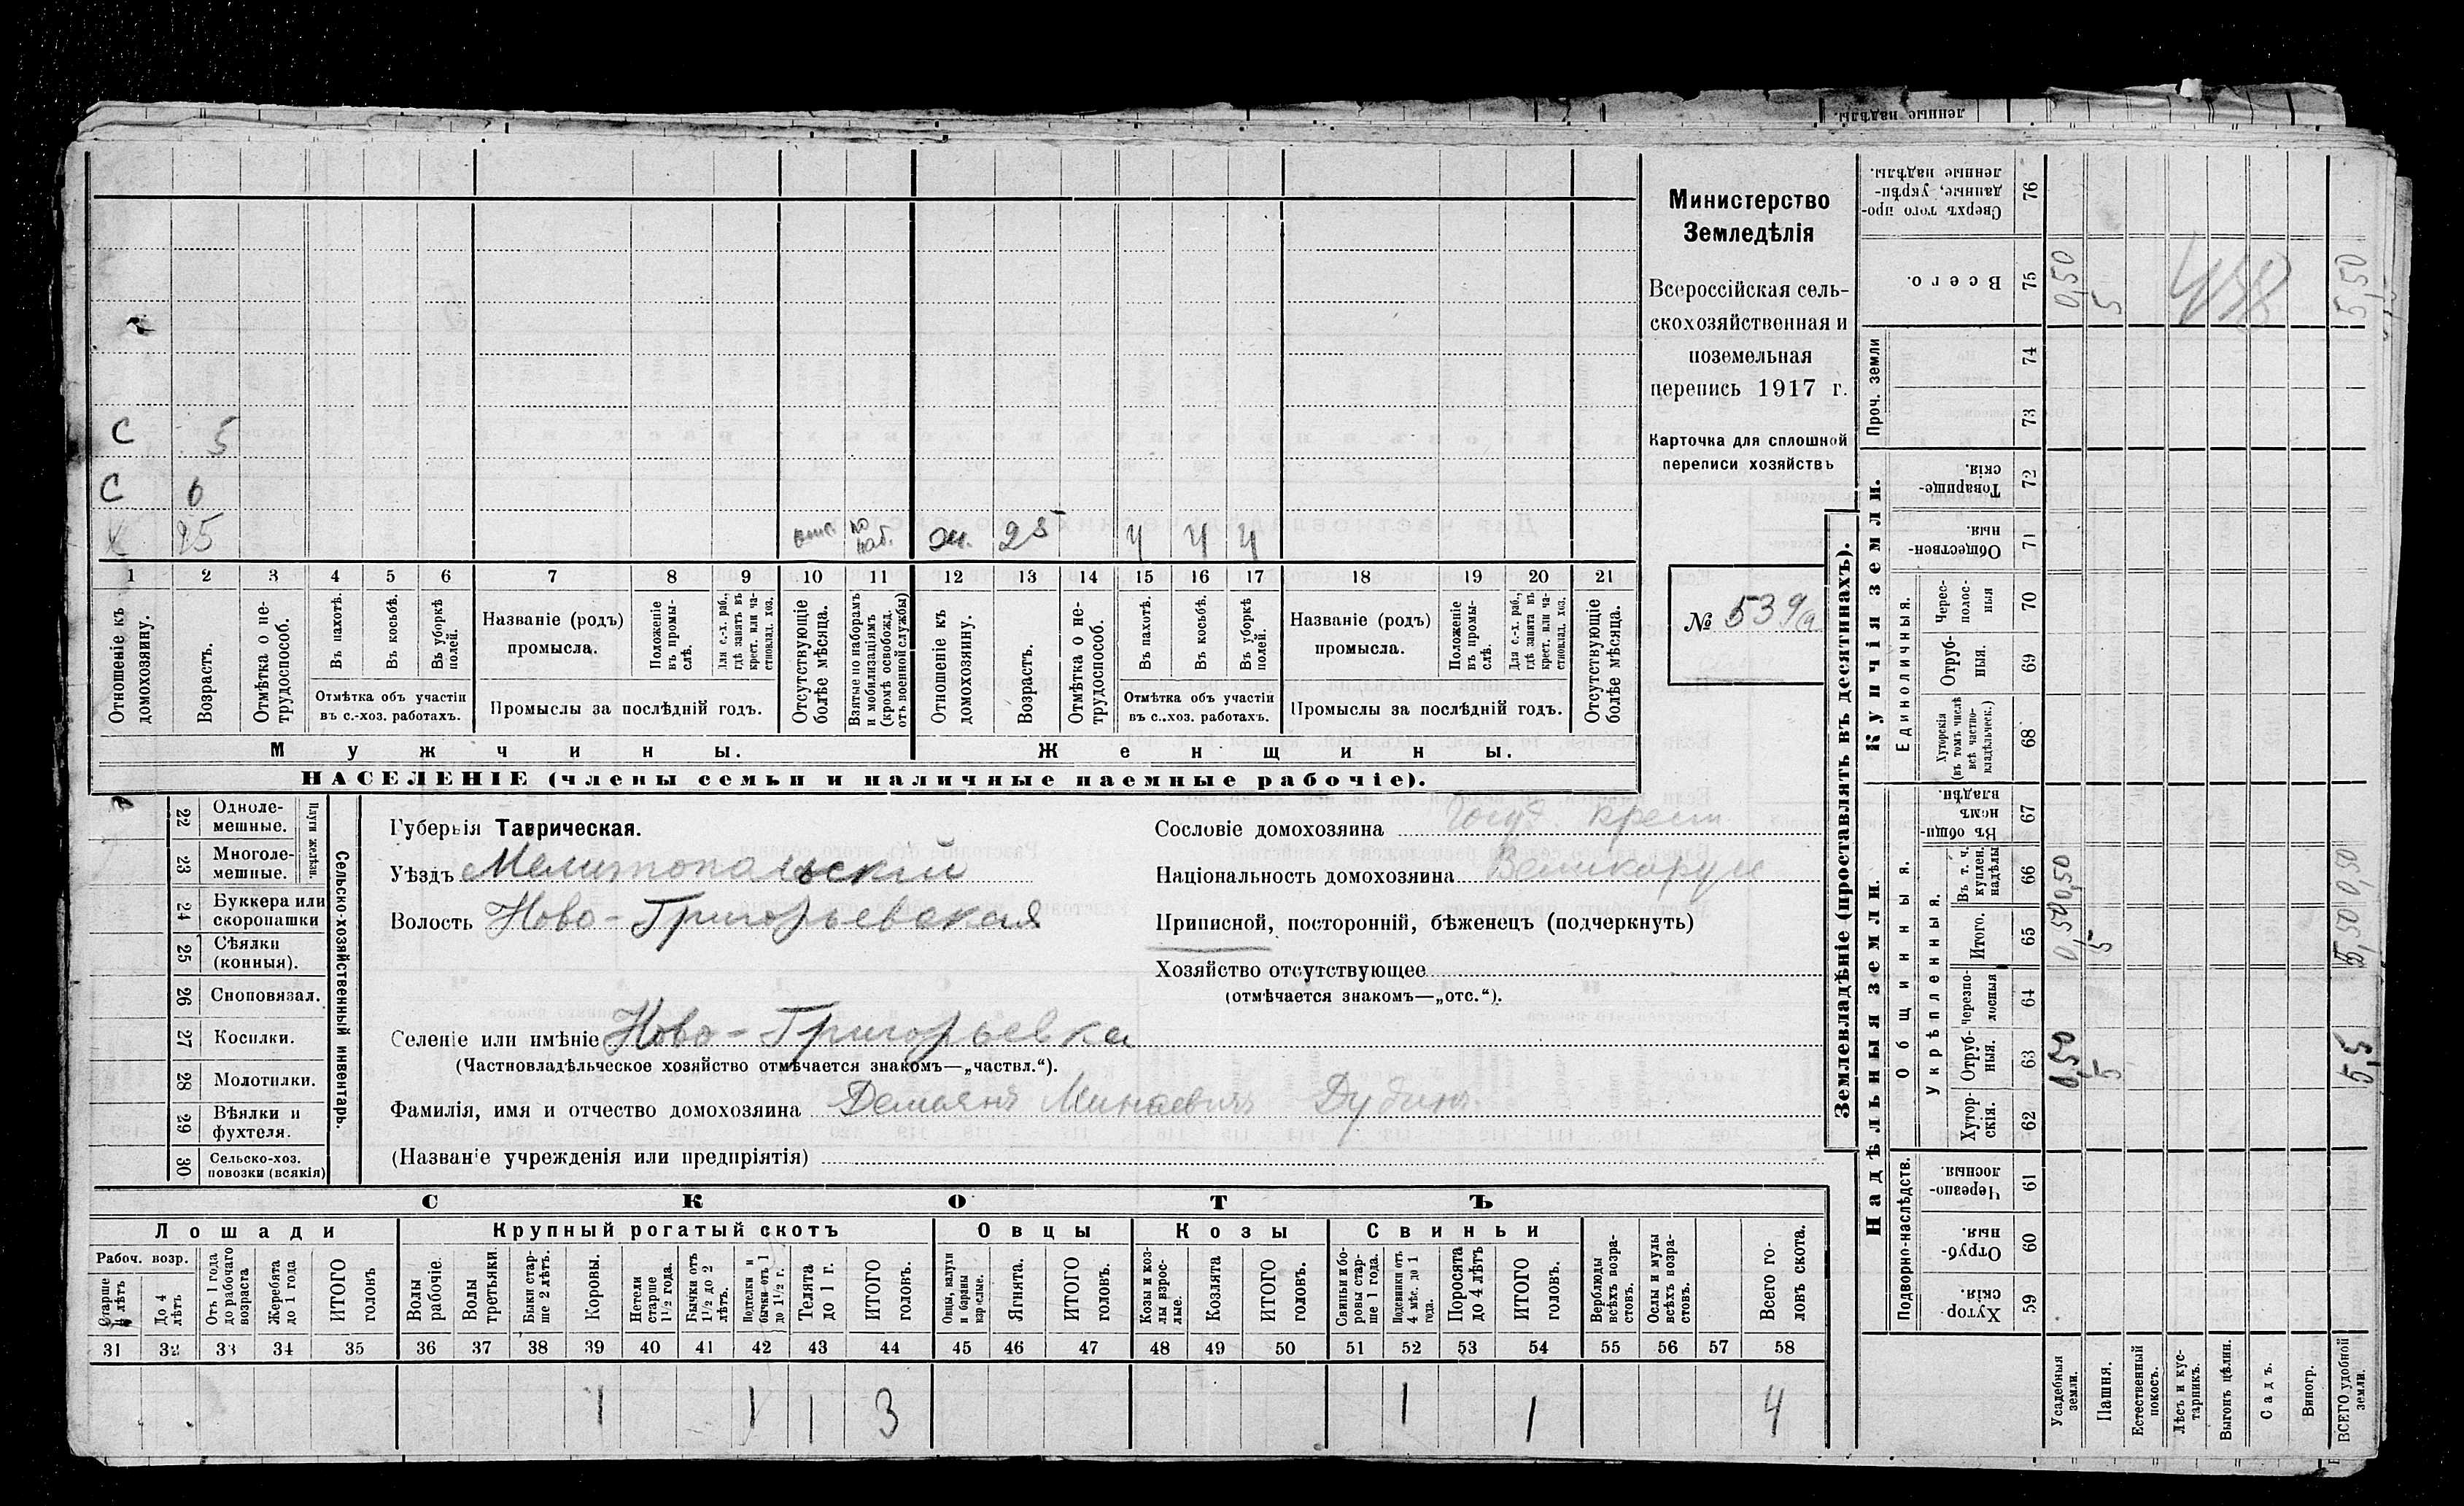 ленные надѣлы.
С 5
С 6
Х 25 отс. по моб. Ж. 25 Ч Ч Ч
1 2 3 4 5 6 7 8 9 10 11 12 13 14 15 16 17 18 19 20 21
Отношеніе къ домохозяину.
Возрастъ.
Отмѣтка о нетрудоспособ.
Въ пахотѣ.
Въ косьбѣ.
Въ уборкѣ полей.
Отмѣтка объ участіи въ с.-хоз. работахъ.
Названіе (родъ) промысла.
Положеніе въ промыслѣ.
Для с.-х. раб., гдѣ занятъ въ крест. или частновлад. хоз.
Промыслы за послѣдній годъ.
Отсутствующіе болѣе мѣсяца.
Взятые по наборамъ и мобилизаціямъ (кромѣ освобожд. отъ военной службы)
Отношеніе къ домохозяину.
Возрастъ.
Отмѣтка о нетрудоспособ.
Въ пахотѣ.
Въ косьбѣ.
Въ уборкѣ полей.
Отмѣтка объ участіи въ с..хоз. работахъ.
Названіе (родъ) промысла.
Положеніе въ промыслѣ.
Для с.-х. раб., гдѣ занята въ крест. или частновлад. хоз.
Промыслы за послѣдній годъ.
Отсутствующіе болѣе мѣсяца.
Мужчины.
Женщины.
НАСЕЛЕНІЕ (члены семьи и наличные наемные рабочіе).
Министерство
Земледѣлія
Всероссійская сель-
скохозяйственная и
поземельная
перепись 1917 г.
Карточка для сплошной
переписи хозяйствъ
№ 539a
22 Одноле-мешные.
23 Многоле-мешные.
Плуги желѣзн.
24 Буккера или скоропашки
25 Сѣялки (конныя).
26 Сноповязал.
27 Косилки.
28 Молотилки.
29 Вѣялки и фухтеля.
30 Сельско-хоз. повозки (всякія)
Сельско-хозяйственный инвентарь.
Губернія Таврическая.
Уѣздъ Мелитопольскій
Волость Ново-Григорьевская
Селеніе или имѣніе Ново-Григорьевка
(Частновладѣльческое хозяйство отмѣчается знакомъ—„частвл.“).
Фамилія, имя и отчество домохозяина Демьянъ Минаевичъ Дудинъ
(Названіе учрежденія или предпріятія)
Сословіе домохозяина Госуд. крест
Національность домохозяина Великорусс
Приписной, посторонній, бѣженецъ (подчеркнуть)
Хозяйство отсутствующее
(отмѣчается знакомъ—„отс.“).
СКОТЪ
Лошади
Крупный рогатый скотъ
Овцы
Козы
Свиньи
Рабоч. возр.
Старше 4 лѣтъ
До 4 лѣтъ
Отъ 1 года до рабочаго возраста
Жеребята до 1 года
ИТОГО головъ
Волы рабочіе.
Волы третьяки.
Быки старше 2 лѣтъ.
Коровы.
Нетели старше 1½ года.
Бычки отъ 1½ до 2 лѣтъ.
Подтелки и бычки отъ 1 до 1½ г.
Телята до 1 г.
ИТОГО головъ.
Овцы, валухи и бараны взрослые.
Ягнята.
ИТОГО головъ.
Козы и козлы взрослые.
Козлята
ИТОГО головъ.
Свиньи и боровы старше 1 года.
Подсвинки отъ 4 мѣс. до 1 года.
Поросята до 4 лѣтъ
ИТОГО головъ.
Верблюды всѣхъ возрастовъ.
Ослы и мулы всѣхъ возрастовъ.
Всего головъ скота.
31 32 33 34 35 36 37 38 39 40 41 42 43 44 45 46 47 48 49 50 51 52 53 54 55 56 57 58
1 1 1 3 1 1 4
Землевладѣніе (проставлять въ десятинахъ).
Надѣльныя земли.
Купчія земли.
Проч. земли
Подворно-наслѣдств.
Общинныя.
Укрѣпленныя.
Единоличныя.
Хуторскія. 59
Отрубныя. 60
Черезполосныя 61
Хуторскія. 62
Отрубныя. 63 0,50 5 5,5
Черезполосныя 64
Итого. 65 0,50 5 5,50
Въ т. ч. куплен. надѣлы 66 0,50 0,50
Въ общин. владѣн. 67
Хуторскія (въ томъ числѣ всѣ частновладѣльческ.) 68
Отрубныя. 69
Чрезполосныя 70
Общественныя. 71
Товарищескія. 72
73
74
Всего. 75 0,50 5 5,50
Сверхъ того проданные, укрѣпленные надѣлы. 76
Усадебныя земли.
Пашня.
Естественный покосъ.
Лѣсъ и кустарникъ.
Выгонъ цѣлин.
Садъ.
Виногр.
ВСЕГО удобной земли.